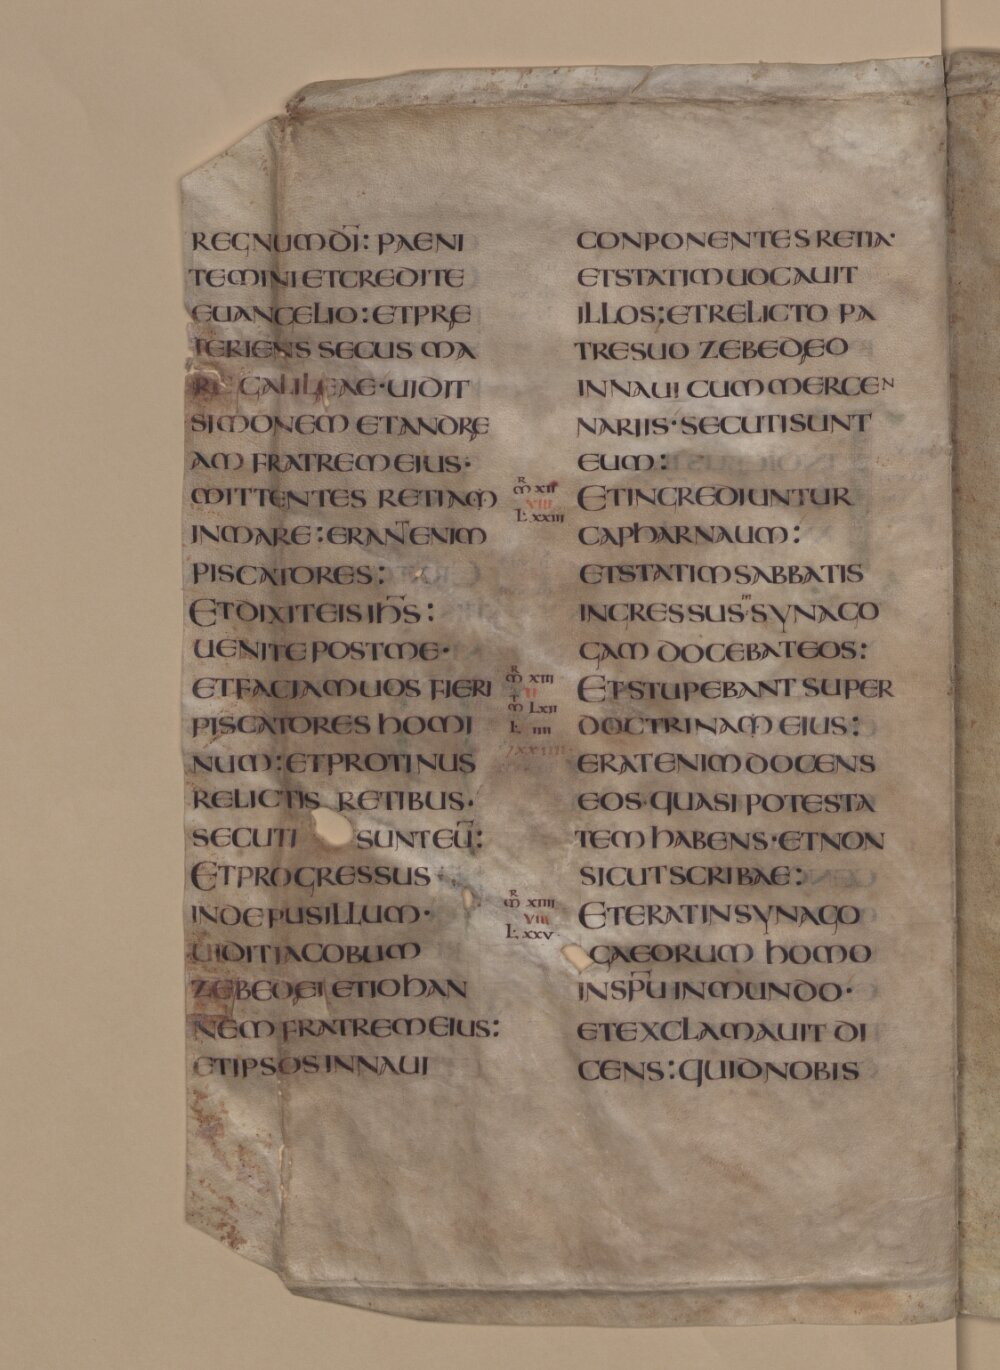 REGNUM DI̅: PAENI
TEMINI ET CREDITE
EUANGELIO: ET PRE
TERIENS SECUS MA
RE GALILEAE· UIDIT
SIMONEM ET ANDRE
AM FRATREM EIUS·
MITTENTES RETIAM
IN MARE: ERANT ENIM
PISCATORES:
ET DIXIT EIS IHS̅:
UENITE POST ME·
ET FACIAM UOS FIERI
PISCATORES HOMI
NUM: ET PROTINUS
RELICTIS RETIBUS·
SECUTI SUNT EU̅:
ET PROGRESSUS
INDE PUSILLUM·
UIDIT IACOBUM
ZEBEDEI ET IOHAN
NEM FRATREM EIUS:
ET IPSOS IN NAUI
MR XII
VIII
L XXIII
MR XIII
II
M LXII
L IIII
MR XIIII
VIII
L XXV
CONPONENTES RETIA·
ET STATIM UOCAUIT
ILLOS: ET RELICTO PA
TRE SUO ZEBEDEO
IN NAUI CUM MERCEN
NARIIS· SECUTI SUNT
EUM:
ET INGREDIUNTUR
CAPHARNAUM:
ET STATIM SABBATIS
INGRESSUS SYNAGO
GAM DOCEBAT EOS:
ET STUPEBANT SUPER
DOCTRINAM EIUS:
ERAT ENIM DOCENS
EOS QUASI POTESTA
TEM HABENS· ET NON
SICUT SCRIBAE:
ET ERAT IN SYNAGO
GAEORUM HOMO
IN SPU̅ INMUNDO·
ET EXCLAMAUIT DI
CENS: QUID NOBIS